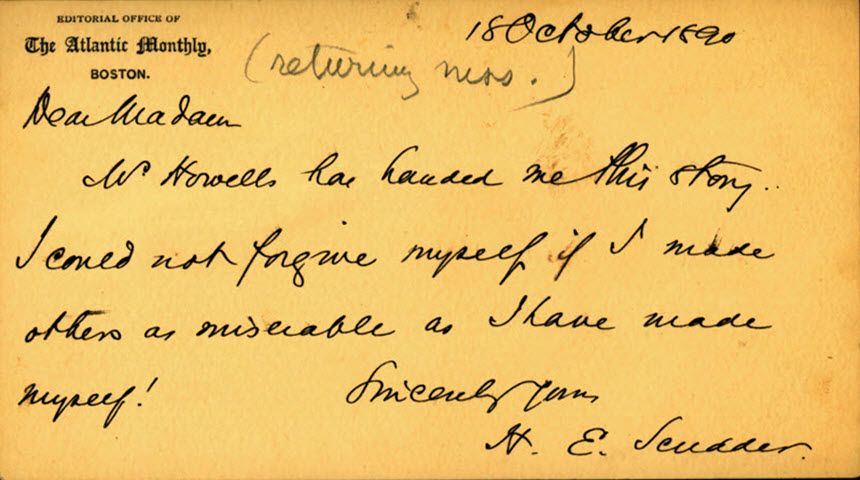 EDITORIAL OFFICE OF
The Atlantic Monthly,
BOSTON.
18 October 1890
(returning mss.)
Dear Madam
Mr Howells has handed me this story.
I could not forgive myself if I made
others as miserable as I have made
myself!
Sincerely Yours
H. E. Scudder.